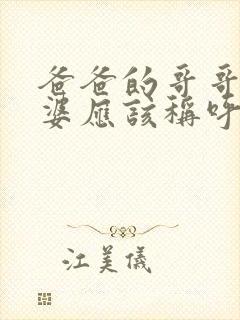 爸爸的哥哥
婆應該稱呼
江美儀